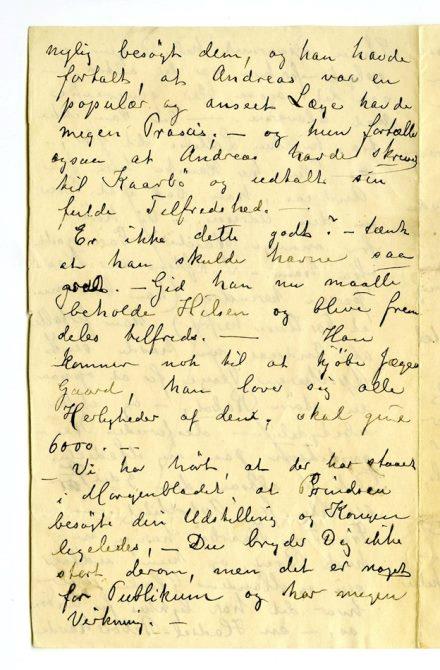 nylig besögt dem, og han havde
fortalt, at Andreas var en
populær og anseet Læge havde
megen Praxis, — og hun fortæller
ogsaa at Andreas havde skrevet
til Kaarbö og udtalt sin
fulde Tilfredshed. —
Er ikke dette godt? — tænk
at han skulde havne saa
godt. — Gid han nu maatte
beholde Hilsen og blive frem
deles tilfreds. — Han
kommer nok til at kjöbe
Gaard, han lover sig alle
Herligheder af den, skal give
6000. —
Vi har hört, at der har staaet
i Morgenbladet, at Prindsen
besögte din Udstilling og Kongen
ligeledes, — Du bryder Dig ikke
stort derom, men det er noget
for Publikum og har megen
Virkning. —